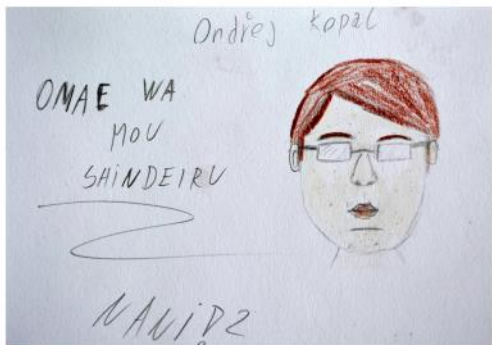 Ondřej Kopal
OMAE WA
MOU
SHINDEIRU